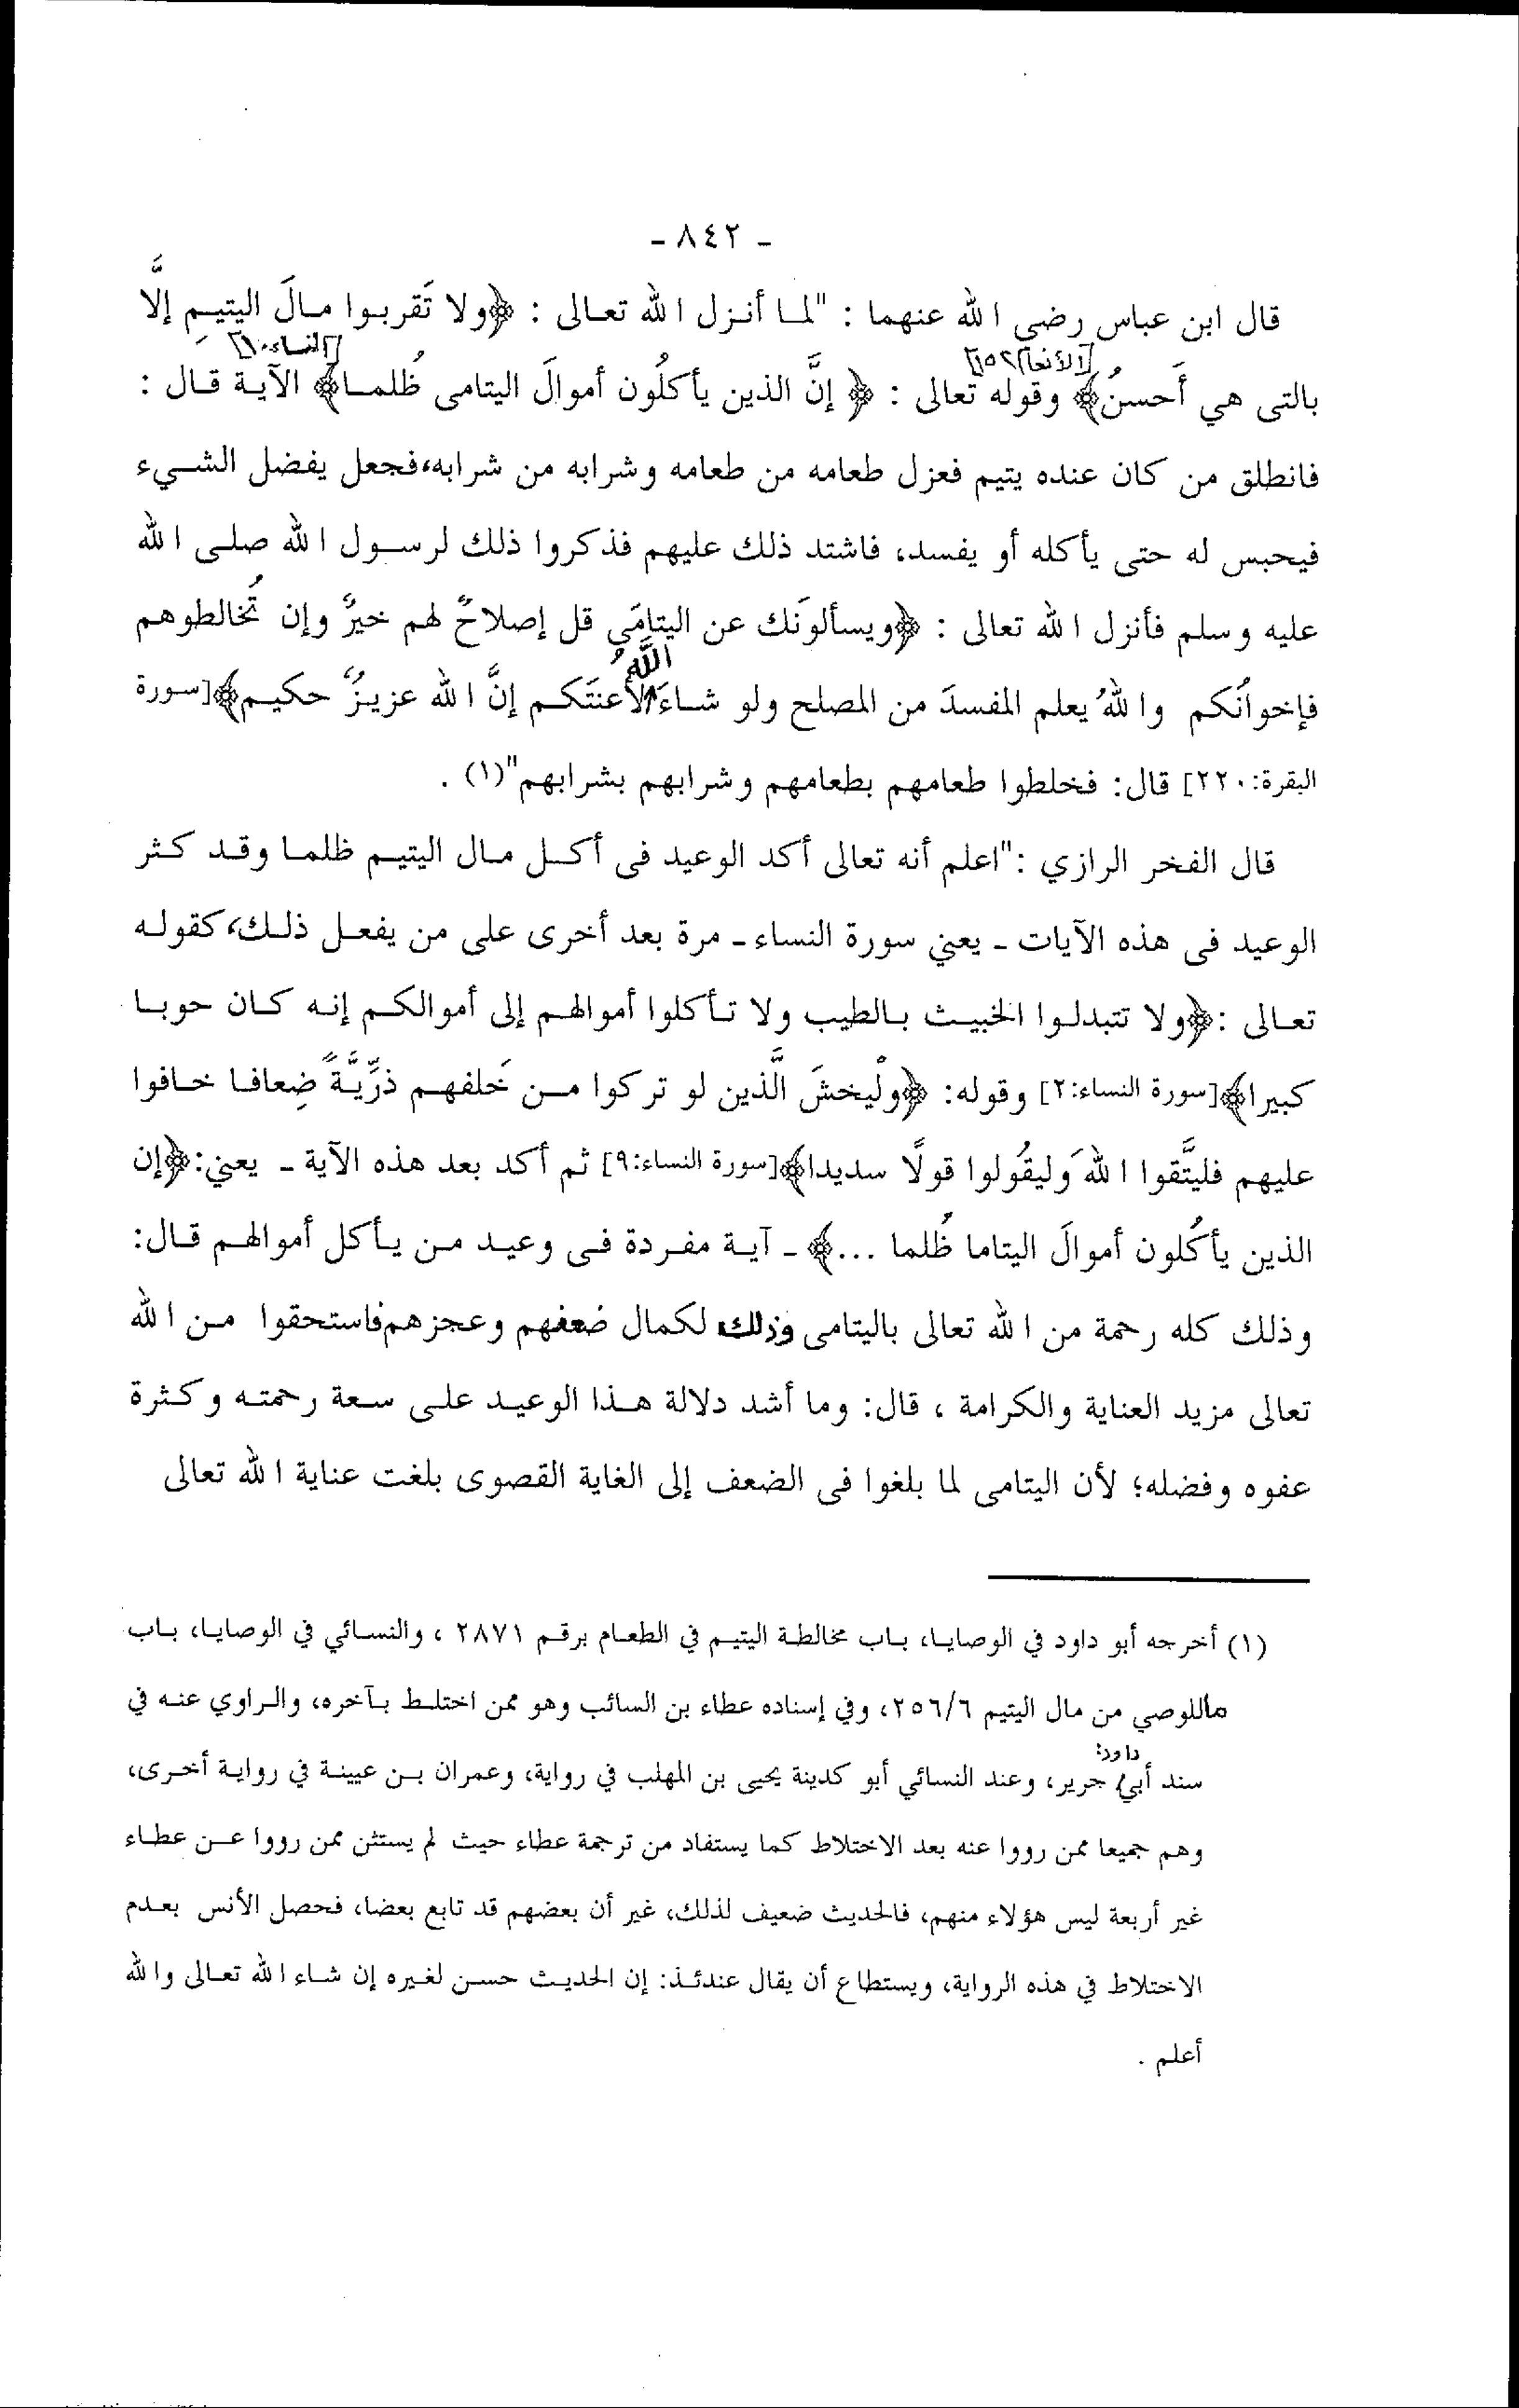 - ٨٤٢ -
قال ابن عباس رضى الله عنهما : "لما أنزل الله تعالى : ﴿ولا تَقربوا مالَ اليتيمِ إلَّا
بالتى هي أَحسنُ﴾ [الأنعام ١٥٢] وقوله تعالى : ﴿ إنَّ الذين يأكلُون أموالَ اليتامى ظُلما﴾ [النساء ١٠] الآية قال :
فانطلق من كان عنده يتيم فعزل طعامه من طعامه وشرابه من شرابه، فجعل يفضل الشيء
فيحبس له حتى يأكله أو يفسد، فاشتد ذلك عليهم فذكروا ذلك لرسول الله صلى الله
عليه وسلم فأنزل الله تعالى : ﴿ويسألونَك عن اليتامَى قل إصلاحٌ لهم خيرٌ وإن تُخالطوهم
فإخوانُكم واللهُ يعلم المفسدَ من المصلح ولو شاءَ اللَّهُ لأَعنتَكم إنَّ الله عزيزٌ حكيم﴾[سورة
البقرة:٢٢٠] قال: فخلطوا طعامهم بطعامهم وشرابهم بشرابهم"(١) .
قال الفخر الرازي :"اعلم أنه تعالى أكد الوعيد فى أكل مال اليتيم ظلما وقد كثر
الوعيد فى هذه الآيات - يعني سورة النساء - مرة بعد أخرى على من يفعل ذلك، كقوله
تعالى :﴿ولا تتبدلوا الخبيث بالطيب ولا تأكلوا أموالهم إلى أموالكم إنه كان حوبا
كبيرا﴾[سورة النساء:٢] وقوله: ﴿ولْيخشَ الَّذين لو تركوا من خَلفهم ذرِّيَّةً ضِعافا خافوا
عليهم فليتَّقوا اللهَ وليقُولوا قولًا سديدا﴾[سورة النساء:٩] ثم أكد بعد هذه الآية - يعني:﴿إن
الذين يأكُلون أموالَ اليتاما ظُلما ...﴾ - آية مفردة فى وعيد من يأكل أموالهم قال:
وذلك كله رحمة من الله تعالى باليتامى وذلك لكمال ضعفهم وعجزهم فاستحقوا من الله
تعالى مزيد العناية والكرامة ، قال: وما أشد دلالة هذا الوعيد على سعة رحمته وكثرة
عفوه وفضله؛ لأن اليتامى لما بلغوا فى الضعف إلى الغاية القصوى بلغت عناية الله تعالى
(١) أخرجه أبو داود في الوصايا، باب مخالطة اليتيم في الطعام برقم ٢٨٧١ ، والنسائي في الوصايا، باب
ماللوصي من مال اليتيم ٢٥٦/٦، وفي إسناده عطاء بن السائب وهو ممن اختلط بآخره، والراوي عنه في
سند أبي داود: جرير، وعند النسائي أبو كدينة يحيى بن المهلب في رواية، وعمران بن عيينة في رواية أخرى،
وهم جميعا ممن رووا عنه بعد الاختلاط كما يستفاد من ترجمة عطاء حيث لم يستثن ممن رووا عن عطاء
غير أربعة ليس هؤلاء منهم، فالحديث ضعيف لذلك، غير أن بعضهم قد تابع بعضا، فحصل الأنس بعدم
الاختلاط في هذه الرواية، ويستطاع أن يقال عندئذ: إن الحديث حسن لغيره إن شاء الله تعالى والله
أعلم .